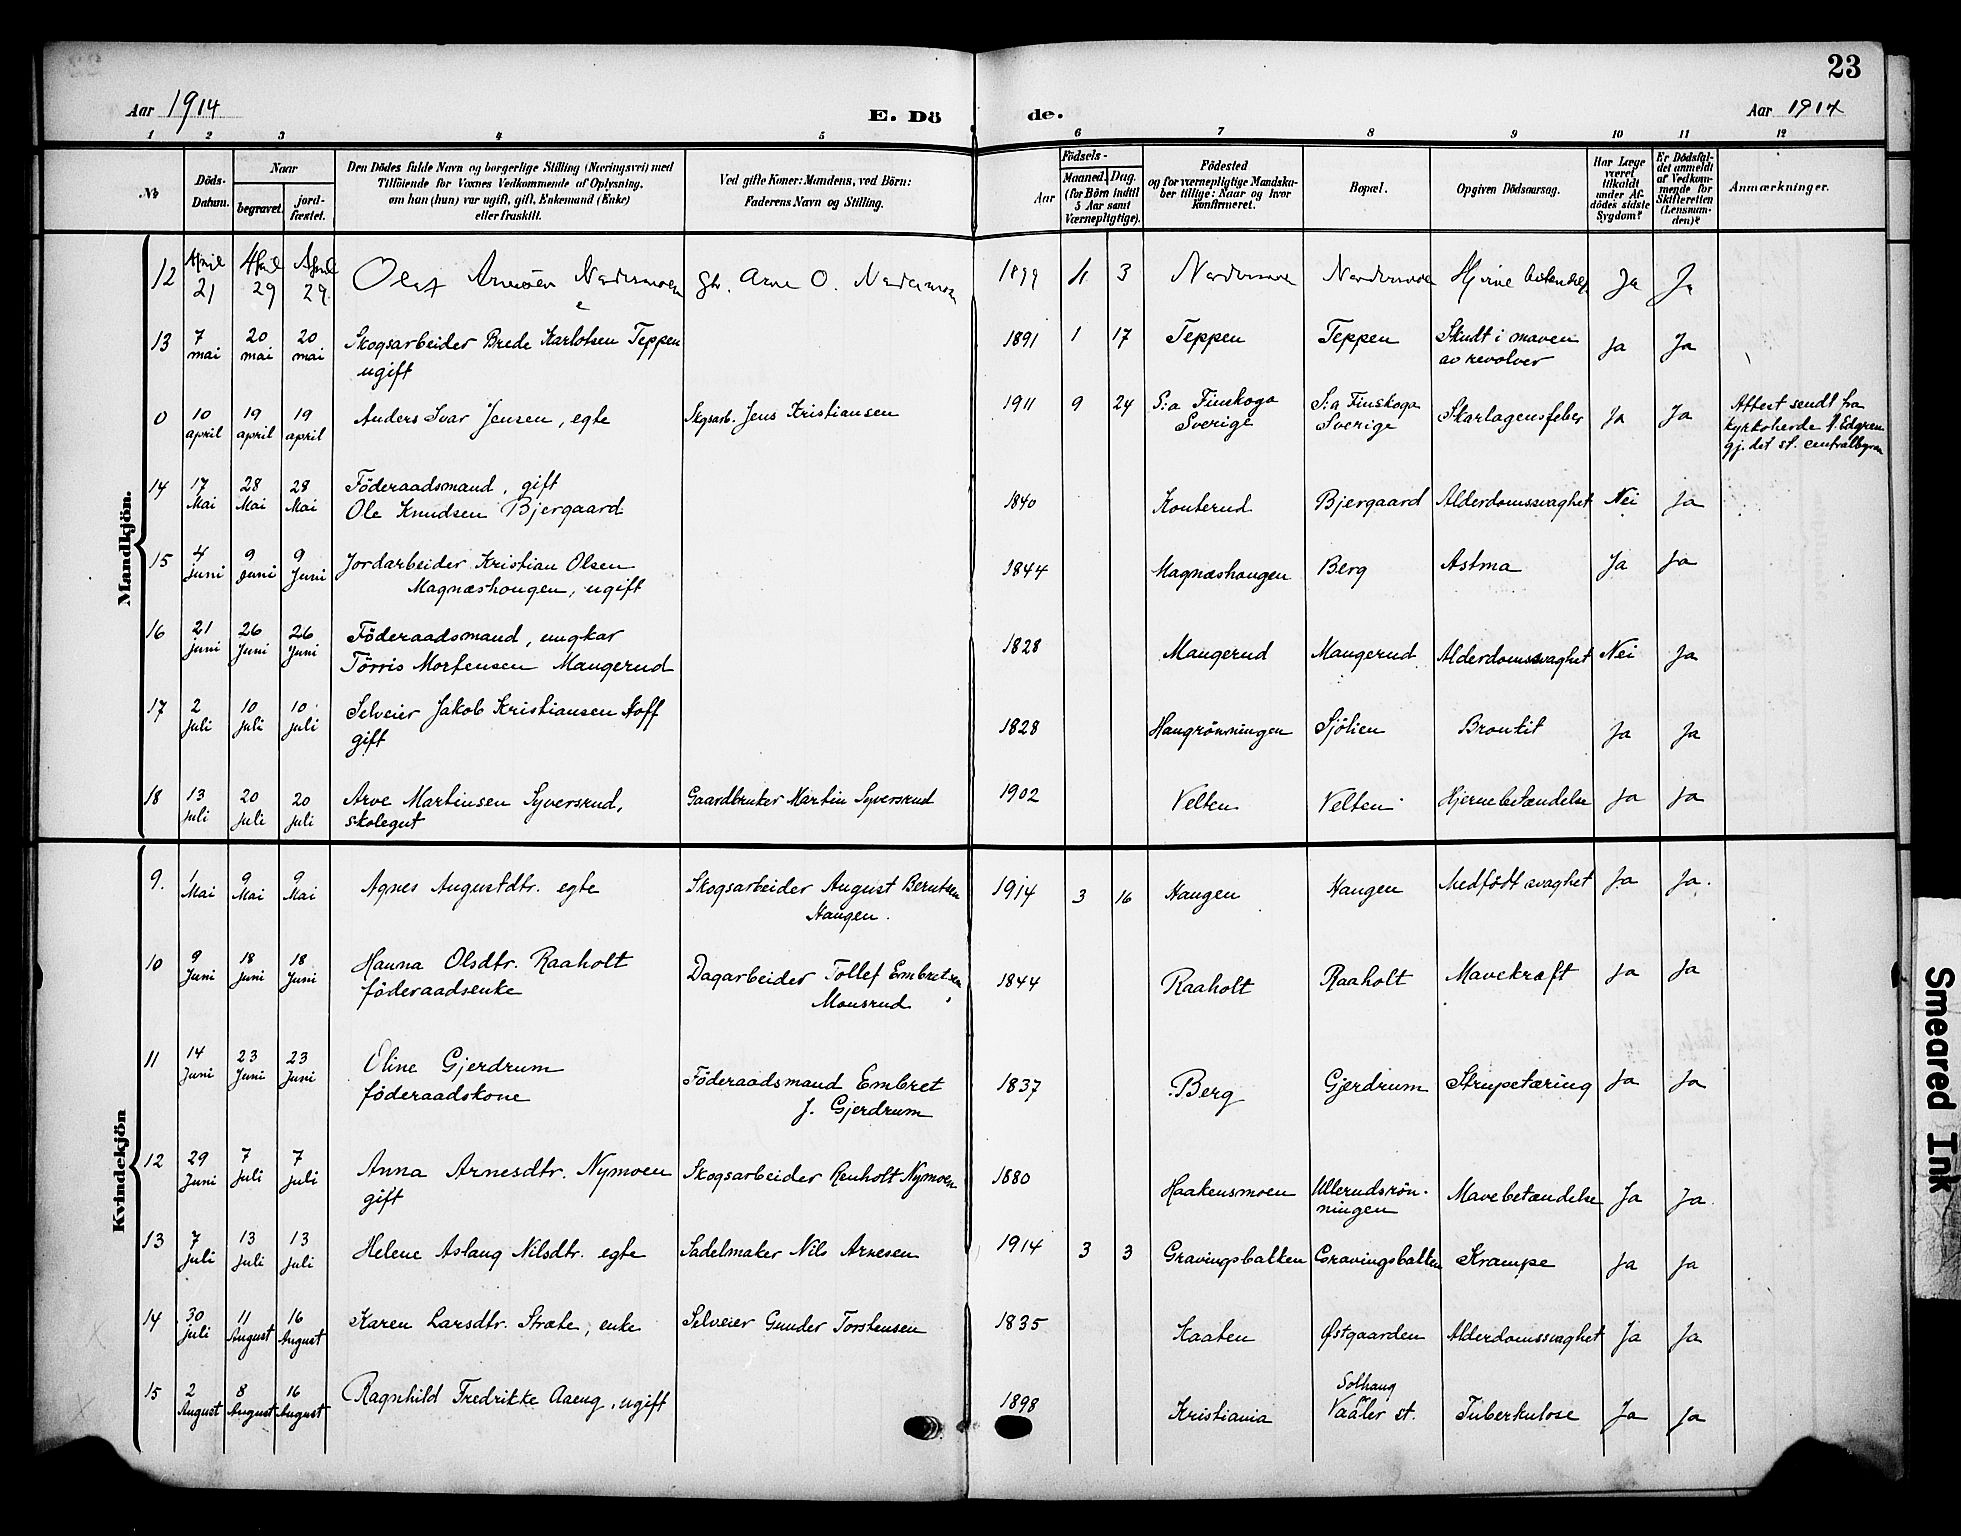 23
Aar 1914
E. Dö de.
Aar 1914
1 2 3 4 5 6 7 8 9 10 11 12
No
Döds-
Datum.
Naar
begravet.
jord-
fæstet.
Den Dödes fulde Navn og borgerlige Stilling (Næringsvei) med
Tilföiende for Voxnes Vedkommende af Oplysning,
om han (hun) var ugift, gift, Enkemand (Enke)
eller fraskilt.
Ved gifte Koner: Mandens, ved Börn:
Faderens Navn og Stilling.
Födsels-
Aar
Maaned. Dag.
(for Börn indtil
5 Aar samt
Værnepligtige).
Födested
og for værnepligtige Mandska-
ber tillige: Naar og hvor
konfirmeret.
Bopæl.
Opgiven Dödsaarsag.
Har Læge
været
tilkaldt
under Af-
dödes sidste
Sygdom?
Er Dödsfal-
det anmeldt
af Vedkom-
mende for
Skifteretten
(Lensman-
den)?
Anmærkninger.
Mandkjön.
12 April 21 April 29 April 29. Olaf Arnesen Nedermoen gbr. Arne O. Nedermoen 1899 4 3 Nedermoe Nedermoen Hjerne betendelse Ja Ja
13 7 mai 20 mai 20 mai Skogsarbeider Brede Karlotsen Teppen 1891 1 17 Teppen Teppen Skudt i maven Ja Ja
ugift av revolver
0 10 april 19 april 19 april Anders Ivar Jensen, egte Skgsarb. Jens Kristiansen 1911 9 24 S:a Finskoga S:a Finskoga Skarlagensfeber Ja Ja Attest sendt fra
Sverige Sverige kyrkoherde Edgren
gj. det st. centralbyrå
14 17 Mai 28 Mai 28 Mai Föderaadsmand, gift
Ole Knudsen Bjergaard 1840 Konterud Bjergaard Alderdomssvaghet Nei Ja
15 4 juni 9 juni 9 juni Jordarbeider Kristian Olsen 1844 Magnæshaugen Berg Astma Ja Ja
Magnæshougen, ugift
16 21 juni 26 Juni 26 Juni Föderaadsmand, ungkar 1828 Maugerud Maugerud Alderdomssvaghet Nei Ja
Törris Mortensen Maugerud
17 2 juli 10 juli 10 juli Selveier Jakob Kristiansen Hoff 1828 Haugrönningen Sjölien Brontit Ja Ja
gift
18 13 juli 20 juli 20 juli Arve Martinsen Syversrud, Gaardbruker Martin Syversrud 1902 Velten Velten Hjernebetændelse Ja Ja
skolegut
Kvindekjön
9. 1 Mai 9 Mai 9 Mai Agnes Augustdtr. egte Skogsarbeider August Berntsen 1914 3 16 Haugen Haugen Medfödt svaghet Ja Ja.
Haugen.
10 9 Juni 18 juni 18 Juni Hanna Olsdtr. Raaholt Dagarbeider Tollef Embretsen 1844 Raaholt Raaholt Mavekræft Ja Ja
föderaadsenke Monsrud
11 14 Juni 23 Juni 23 Juni Oline Gjerdrum Föderaadsmand Embret 1837 Berg Gjerdrum Strupetæring Ja Ja
föderaadskone J. Gjerdrum
12 29 Juni 7 juli 7 juli Anna Arnesdtr. Nymoen Skogsarbeider Renholt Nymoen 1880 Haakensmoen Ullerudsrön- Mavebetændelse Ja Ja.
gift ningen
13 7 juli 13 juli 13 juli Helene Aslaug Nilsdtr. egte Sadelmaker Nils Arnesen 1914 3 3 Gravingsbakken Gravingsbakken Krampe Ja Ja
14 30 juli 11 August 16 August Karen Larsdtr. Stræte, enke Selveier Gunder Torstensen 1835 Kaaten Østgaarden Alderdomssvaghet Ja Ja
15 2 August 8 August 16 August Ragnhild Fredrikke Aaeng, ugift 1898 Kristiania Solhaug Tuberkulose Ja Ja
Vaaler st.
Smeared Ink